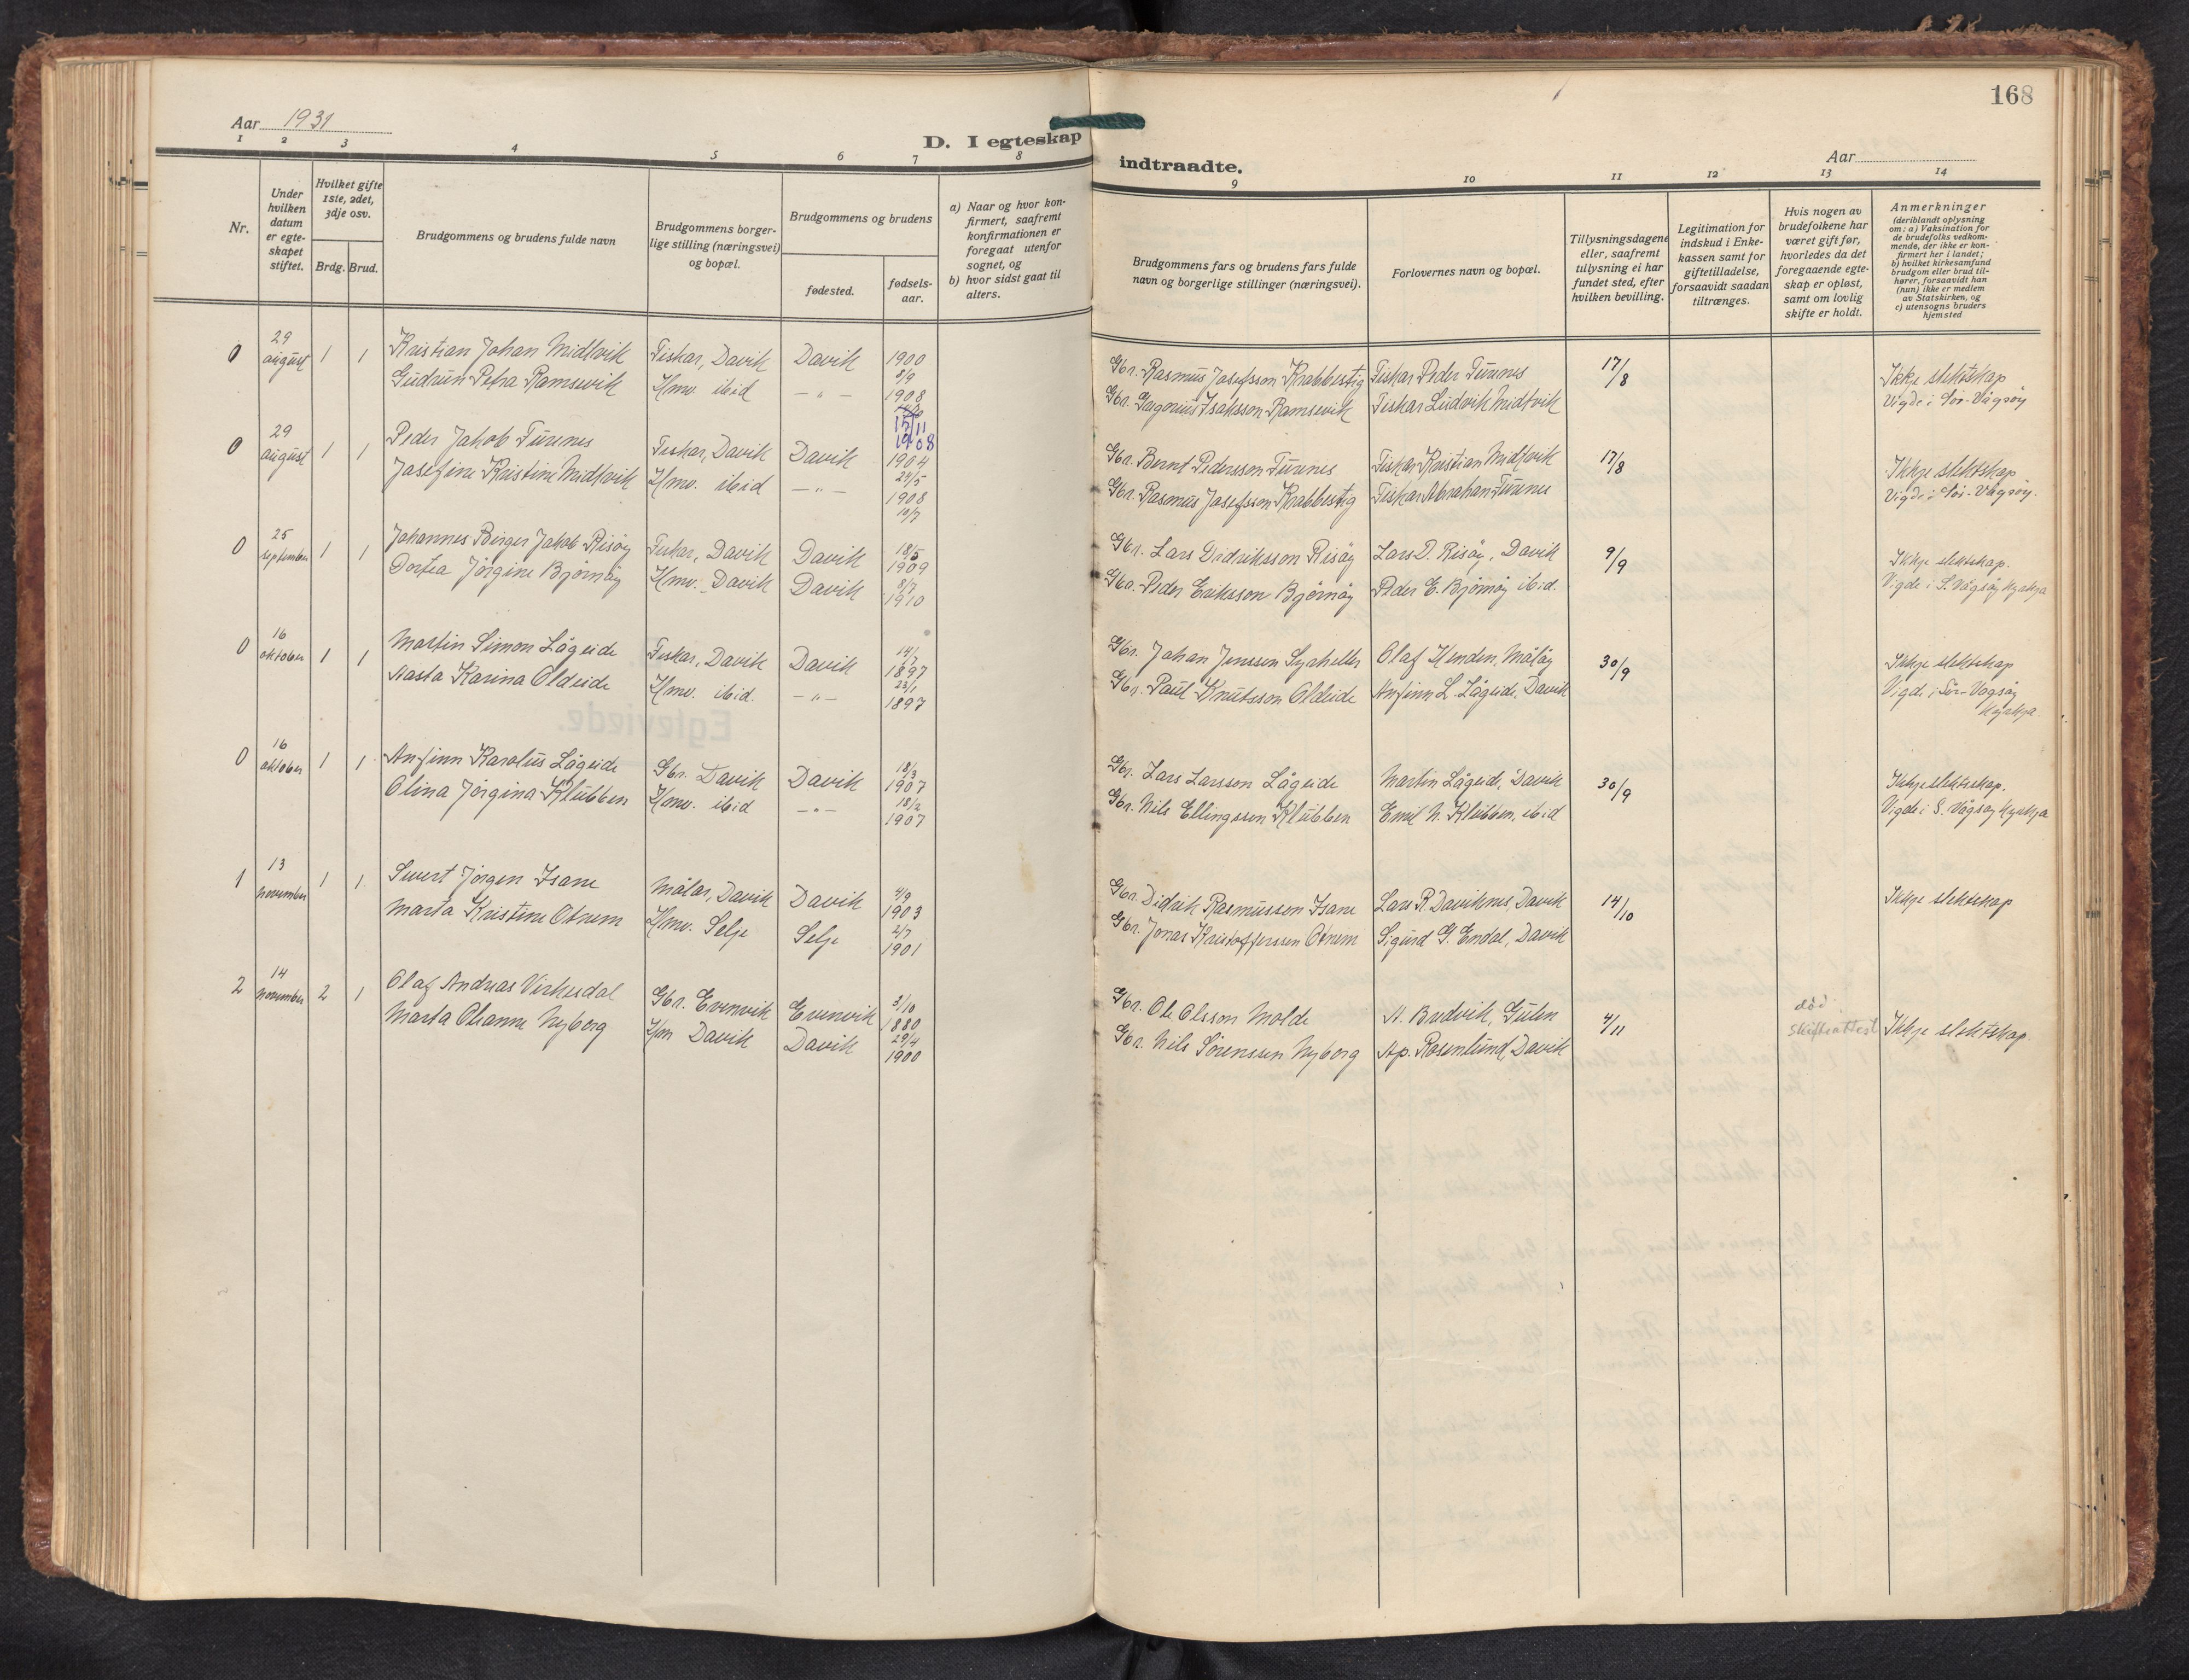 Aar 1931
D. I egteskap
1 2 3 4 5 6 7 8
Nr.
Under hvilken datum er egte-skapet stiftet.
Hvilket gifte 1ste, 2det, 3dje osv.
Brdg. Brud.
Brudgommens og brudens fulde navn
Brudgommens borger-lige stilling (næringsvei) og bopæl.
Brudgommens og brudens
fødested.
fødsels-aar.
a) Naar og hvor kon-firmert, saafremt konfirmationen er foregaat utenfor sognet, og
b) hvor sidst gaat til alters.
0 29 august 1 1 Kristian Johan Midtvik Fiskar, Davik Davik 1900 8/9
Gudrun Petra Ramsevik Hmv. ibid — " — 1908
15/11 1908
0 29 august 1 1 Peder Jakob Turenes Fiskar, Davik Davik 1904 24/5
Josefine Kristine Midtvik Hmv. ibid — " — 1908 10/7
0 25 september 1 1 Johannes Birger Jakob Risøy Fiskar, Davik Davik 18/5 1909
Dortea Jørgine Bjørnøy Hmv. Davik Davik 8/7 1910
0 16 oktober 1 1 Martin Simon Lågeide Fiskar, Davik Davik 14/7 1897
Aasta Karina Oldeide Hmv. ibid. — " — 23/1 1897
0 16 oktober 1 1 Anfinn Karolus Lågeide Gbr. Davik Davik 18/3 1907
Olina Jørgina Klubben Hmv. ibid — " — 18/2 1907
1 13 november 1 1 Sivert Jørgen Isane Målar, Davik Davik 4/9 1903
Marta Kristine Otnem Hmv. Selje Selje 2/7 1901
2 14 november 2 1 Olaf Andreas Virkesdal Gbr. Evenvik Evenvik 3/10 1880
Marta Olianne Nyborg Hm Davik Davik 29/4 1900
168
indtraadte.
Aar
9 10 11 12 13 14
Brudgommens fars og brudens fars fulde navn og borgerlige stillinger (næringsvei).
Forlovernes navn og bopæl.
Tillysningsdagene eller, saafremt tillysning ei har fundet sted, efter hvilken bevilling.
Legitimation for indskud i Enke-kassen samt for giftetilladelse, forsaavidt saadan tiltrænges.
Hvis nogen av brudefolkene har været gift før, hvorledes da det foregaaende egte-skap er opløst, samt om lovlig skifte er holdt.
Anmerkninger (deriblandt oplysning om: a) Vaksination for de brudefolks vedkom-mende, der ikke er kon-firmert her i landet; b) hvilket kirkesamfund brudgom eller brud til-hører, forsaavidt han (hun) ikke er medlem av Statskirken, og c) utensogns bruders hjemsted
Gbr. Rasmus Josefsson Krabbestig Fiskar Peder Turenes 17/8 Ikkje slektskap
Gbr. Gregorius Isaksson Ramsevik Fiskar Ludvik Midtvik Vigde i Sør-Vågsøy
Gbr. Bernt Pedersson Turenes Fiskar Kristian Midtvik 17/8 Ikkje slektskap
Gbr. Rasmus Josefsson Krabbestig Fiskar Abraham Turenes Vigde i Sør-Vågsøy.
Gbr. Lars Didriksson Risøy Lars D. Risøy, Davik 9/9 Ikkje slektskap.
Gbr. Peder Eriksson Bjørnøy Peder E. Bjørnøy ibid. Vigde i S. Vågsøy kyrkja
Gbr. Johan Jenssen Olaf Henden, Måløy 30/9 Ikkje slektskap
Gbr. Paul Knutsson Oldeide Anfinn L. Lågeide, Davik Vigde i Sør-Vågsøy kyrkja
Gbr. Lars Larsson Lågeide Martin Lågeide, Davik 30/9 Ikkje slektskap.
Gbr. Nils Ellingssen Klubben Emil N. Klubben, ibid Vigde i S. Vågsøy kyrkja
Gbr. Didrik Rasmusson Isane Lars R. Daviknes, Davik 14/10 Ikkje slektskap
Gbr. Jonas Kristofferssen Otnem Sigurd G. Endal, Davik
Gbr. Ole Olsson Molde A. Brudvik, Gulen 4/11 død Skifteattest Ikkje slektskap.
Gbr. Nils Sørenssen Nyborg Ap. Rosenlund, Davik